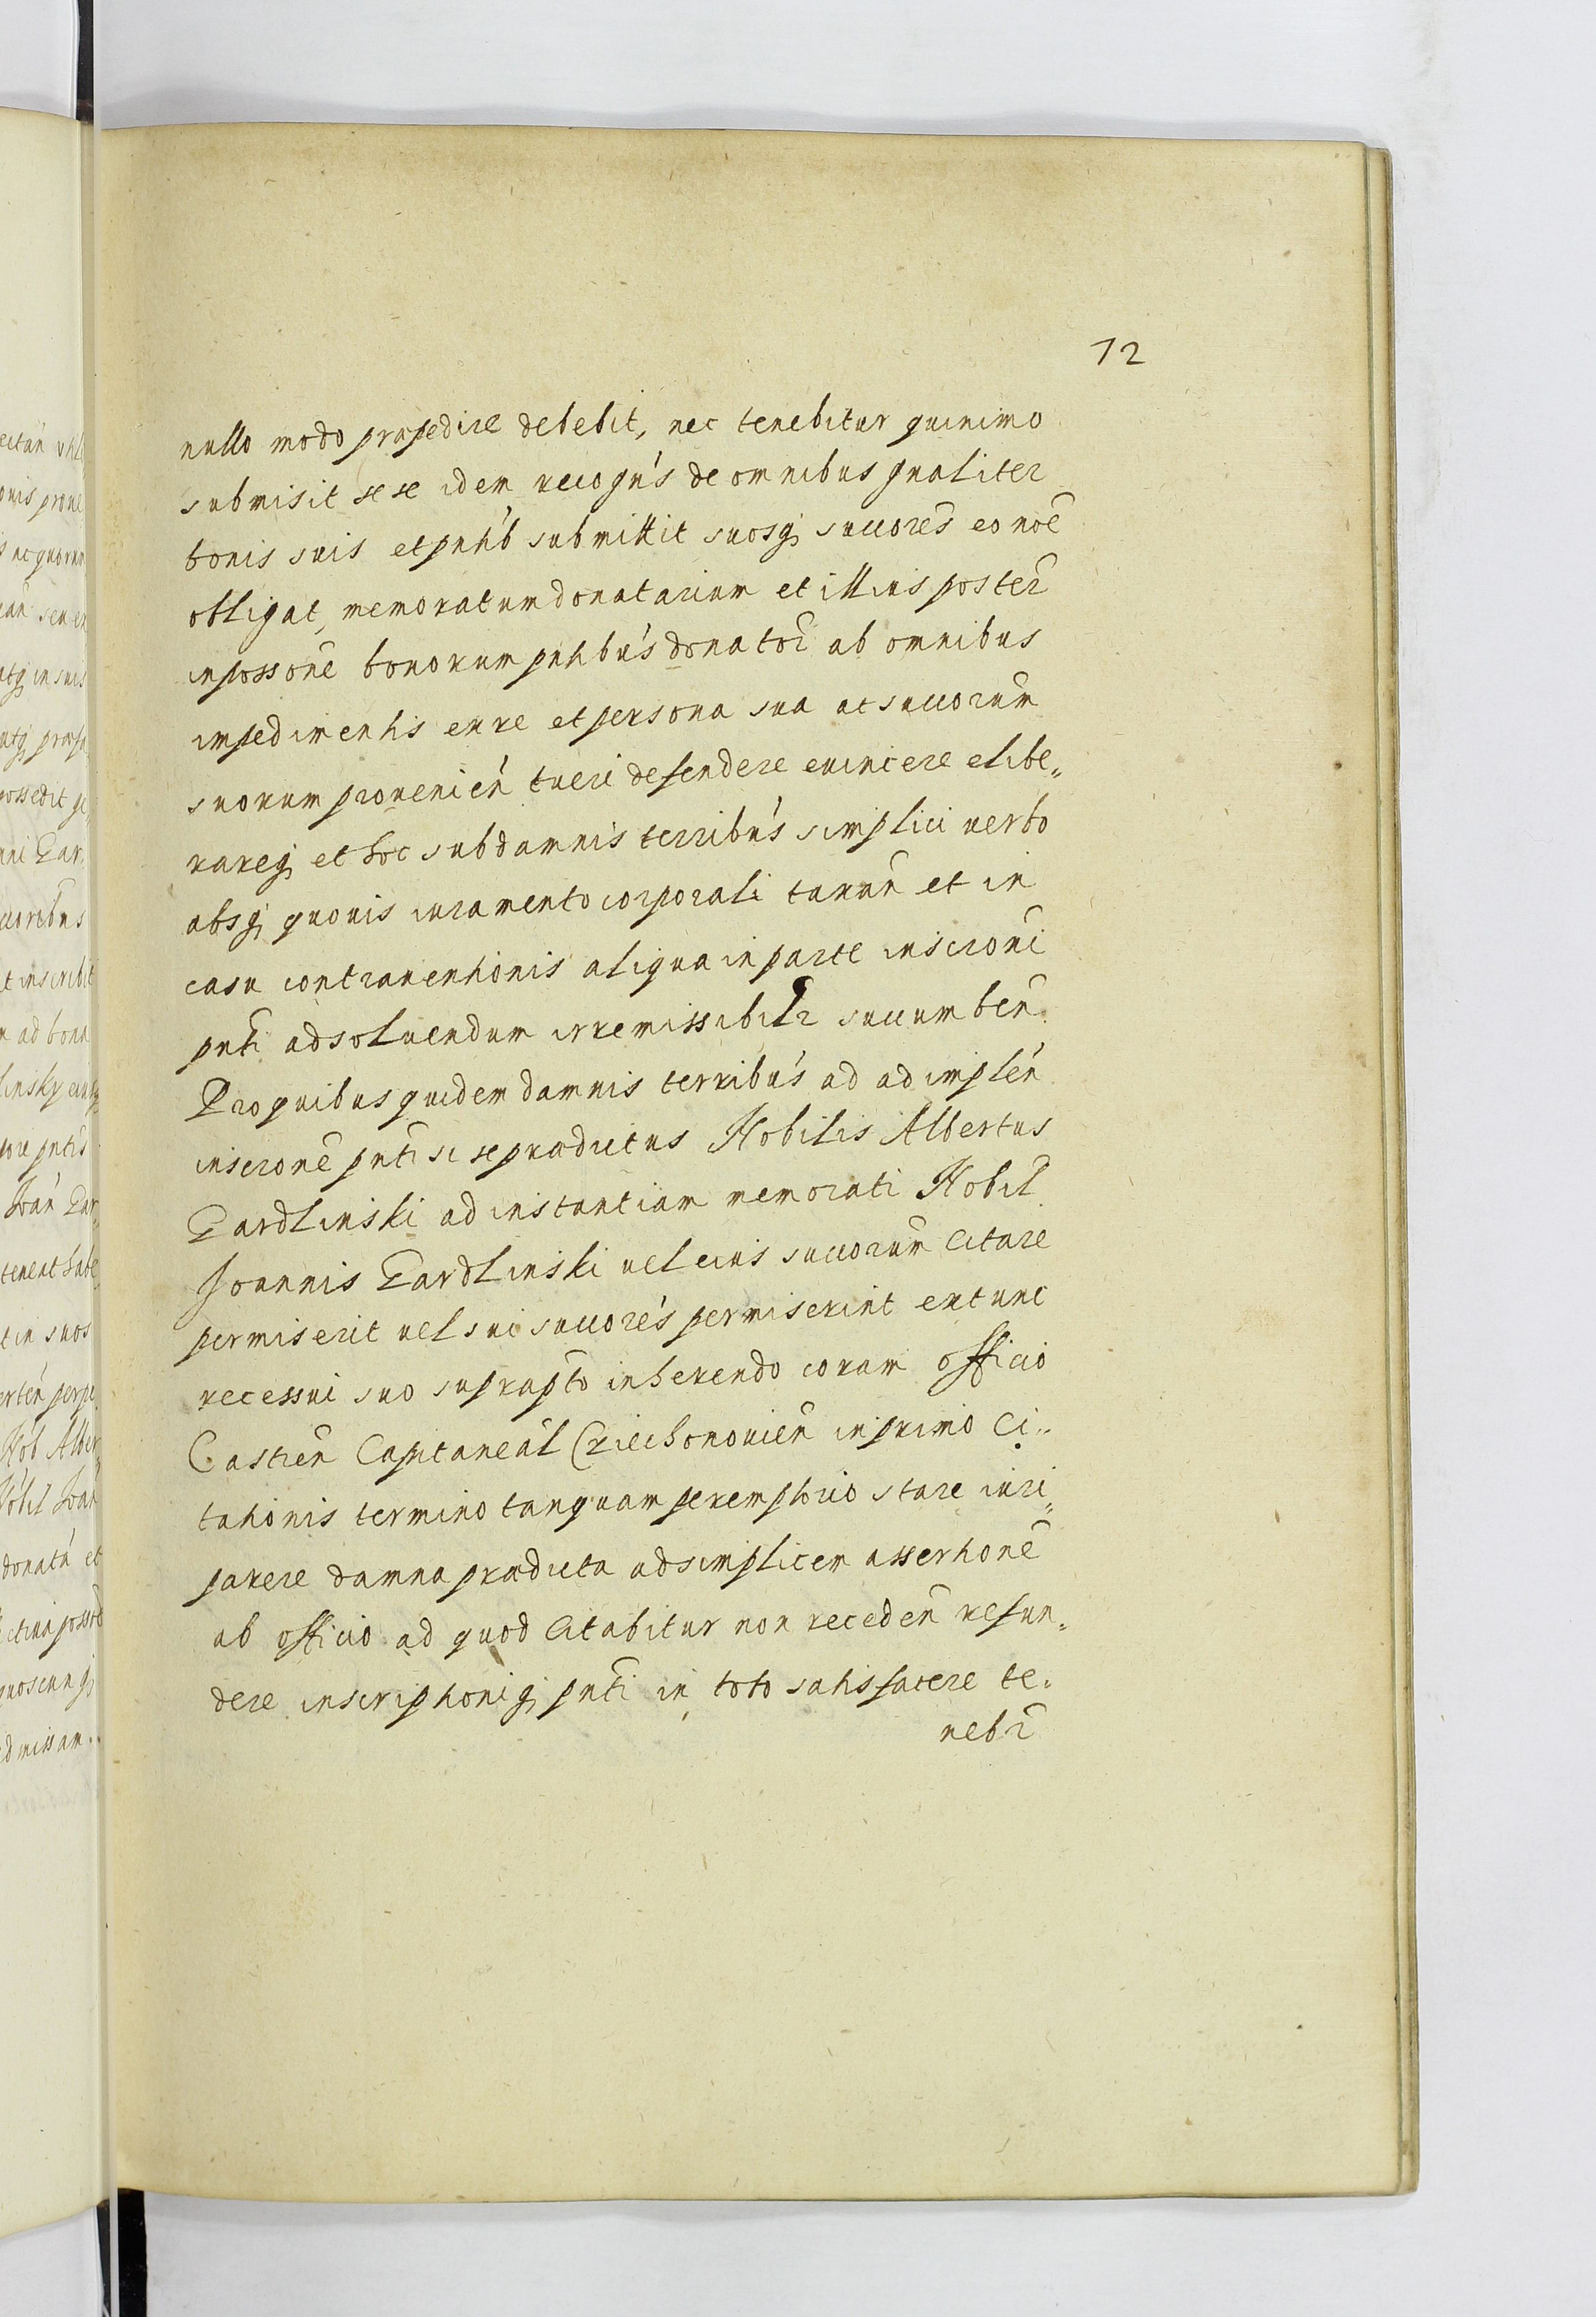 72
nullo modo præpedire debebit, nec tenebitur quinimo
submisit sese idem recogn's de omnibus gnaliter
bonis suis et pnhb submittit suosq succores eo noe
obligat, memoratum donatarium et illius poster
in possone bonorum pntibus donator ab omnibus
impedimentis eu re et persona sua ac succorum
suorum prouenien tueri defendere euincere elibe„
rareq et hoc sub damnis terribus simplici uerbo
absq quouis iuramento corporali taxan et in
casu contrauentionis aliqua in parte inscroni
pnti ad soluendum irremissibilr succumben
Pro quibus quidem damnis terribus ad adimplen
inscrone pnti si se prædictus Nobilis Albertus
Gardlinski ad instantiam memorati Nobil
Joannis Gardlinski uel eius succorum citare
permiserit uel sui succores permiserint extunc
recessui suo suprapto inherendo coram officio
Castren Capitaneal Cziechonouien in primo Ci„
tationis termino tanquam peremptorio stare iuri„
parere damna prædicta ad simplicem assertione
ab officio ad quod Citabitur non receden refun„
dere inscriptioniq pnti in toto satisfacere te„
nebr